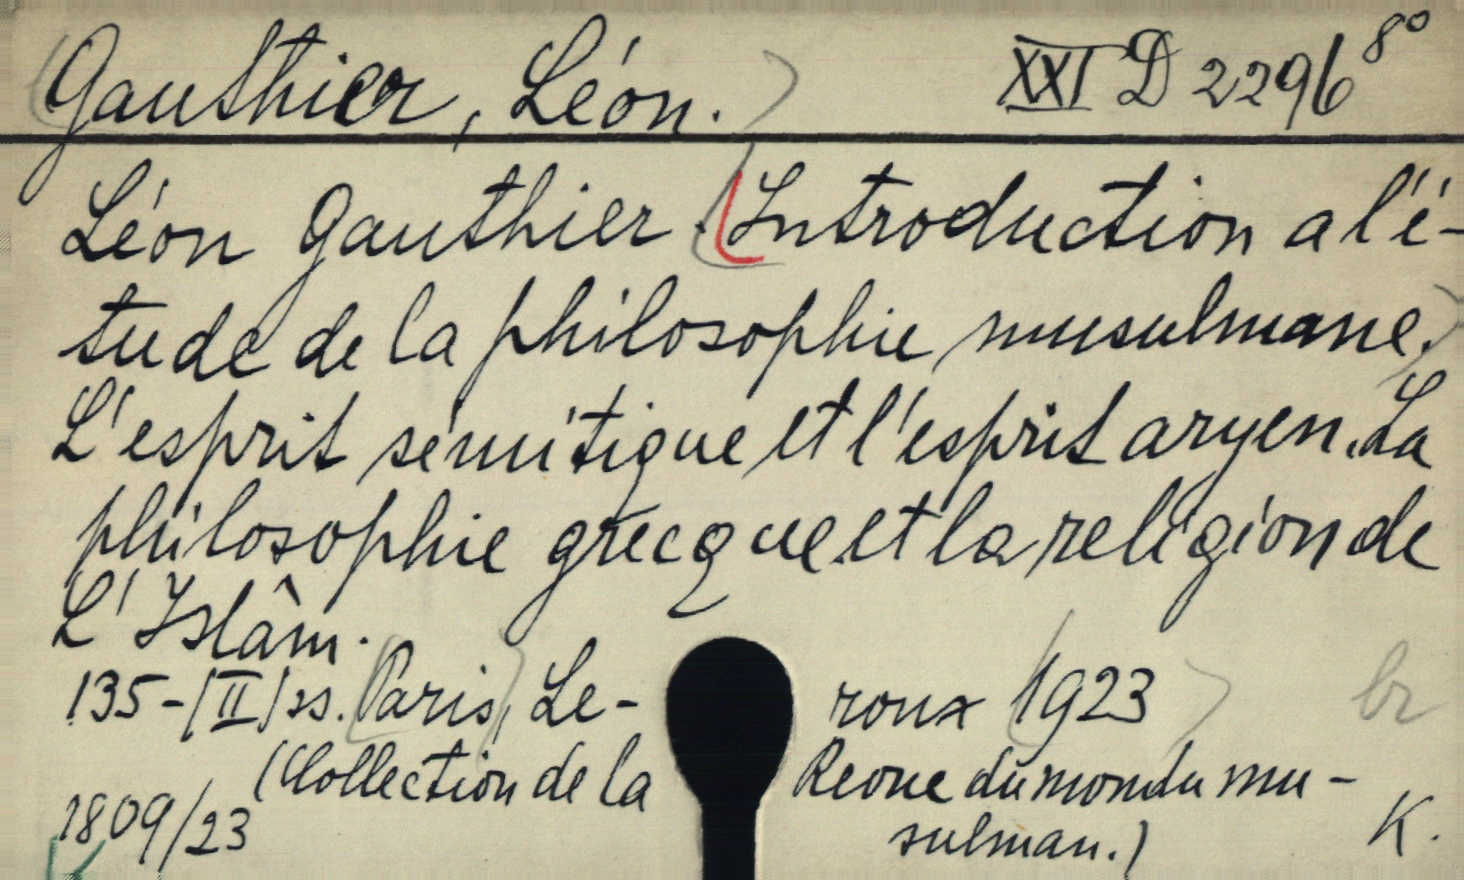 Gauthier, Léon. XXI D 2296 8°
Léon Gauthier. Introduction a l'é-
tude de la philosophie musulmane.
L'esprit sémitique et l'esprit aryen. La
philosophie grecque et la religion de
L'Islâm.
135-[II] ss. Paris, Le-roux 1923 br
(Collection de la Revue du mondu mu-
1809/23 sulman.) K.